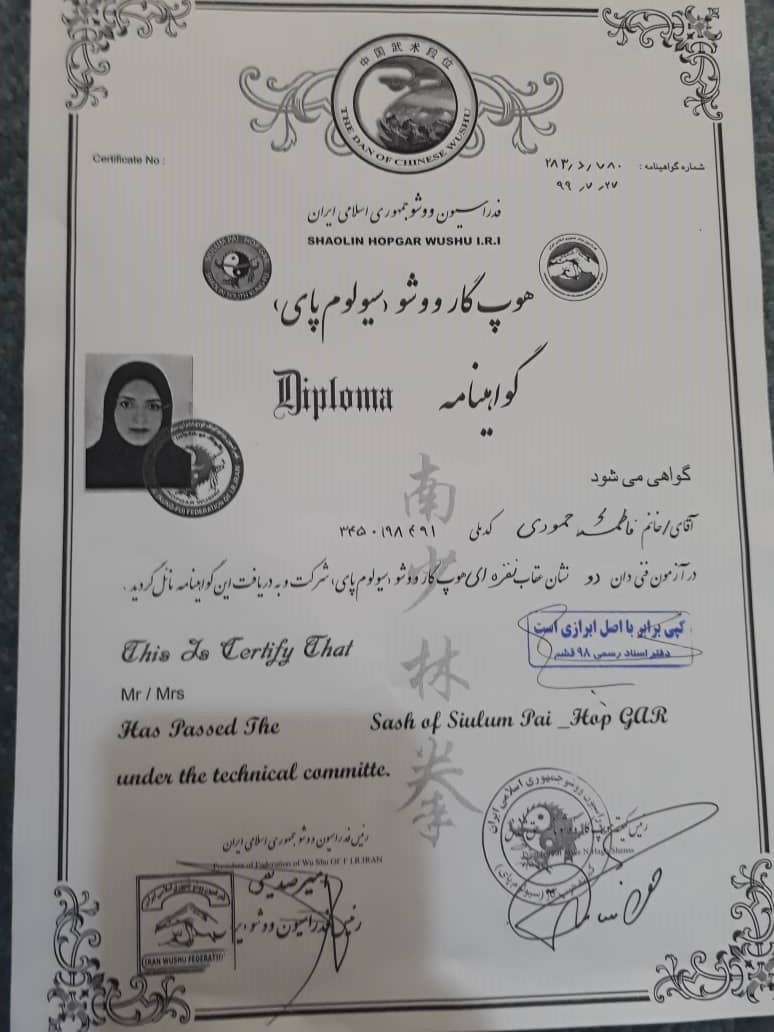 中国武术段位
THE DAN OF CHINESE WUSHU
Certificate No :
شماره گواهینامه : ۲۸۳٫۵٫۷۸۰
۹۹٫۷٫۲۷
فدراسیون ووشو جمهوری اسلامی ایران
SHAOLIN HOPGAR WUSHU I.R.I
هوپ گار ووشو (سیولوم پای)
Diploma گواهینامه
گواهی می شود
آقای/خانم فاطمه حمودی کدملی
در آزمون فنی دان دو نشان عقاب نقره ای هوپ گار ووشو (سیولوم پای) شرکت و به دریافت این گواهینامه نائل گردید .
南少林拳
کپی برابر با اصل ابرازی است
دفتر اسناد رسمی ۹۸ قشم
This Is Certify That
Mr / Mrs
Has Passed The Sash of Siulum Pai _Hop GAR
under the technical committe.
رئیس فدراسیون ووشو جمهوری اسلامی ایران
President of Federation of Wu Shu OF I.R.IRAN
امیر صدیقی
رئیس فدراسیون ووشو
IRAN WUSHU FEDERATION